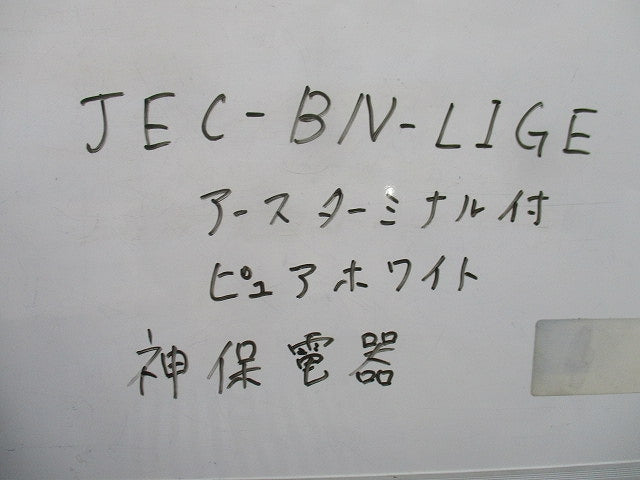 JEC-BN-LIGE
アースターミナル付
ピュアホワイト
神保電器